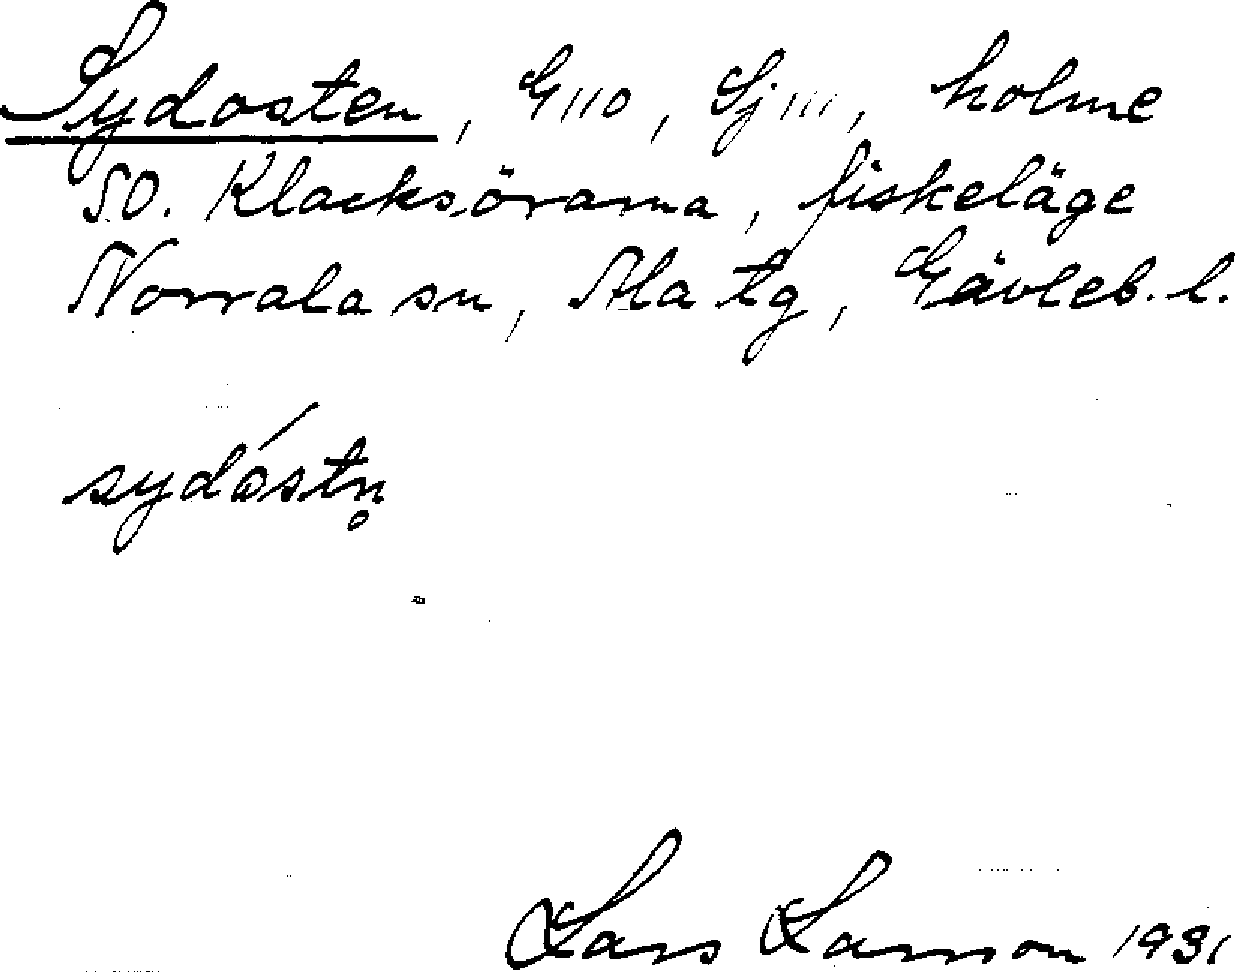 Sydosten, G110, Sj111, holme
SO. Klacksörarna, fiskeläge
Norrala sn, Ala tg, Gävleb. l.
sydóstn̥
Lars Larsson 1931